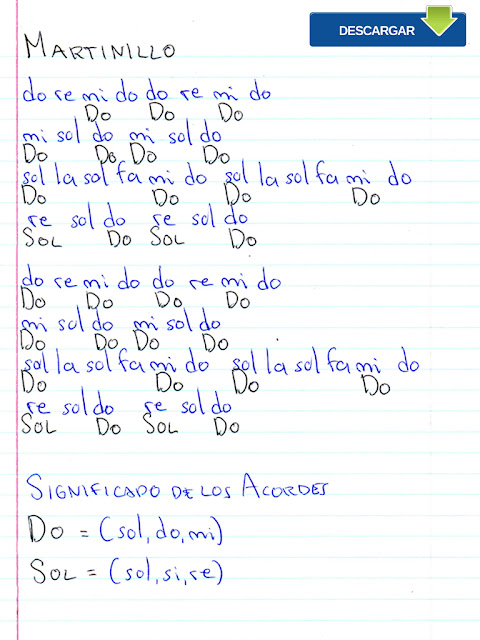 DESCARGAR
MARTINILLO
do re mi do do re mi do
Do Do Do
mi sol do mi sol do
Do Do Do Do
sol la sol fa mi do sol la sol fa mi do
Do Do Do Do
re sol do re sol do
SOL Do SOL Do
do re mi do do re mi do
Do Do Do Do
mi sol do mi sol do
Do Do Do Do
sol la sol fa mi do sol la sol fa mi do
Do Do Do Do
re sol do re sol do
SOL Do SOL Do
SIGNIFICADO DE LOS ACORDES
Do = (sol, do, mi)
SOL = (sol, si, re)